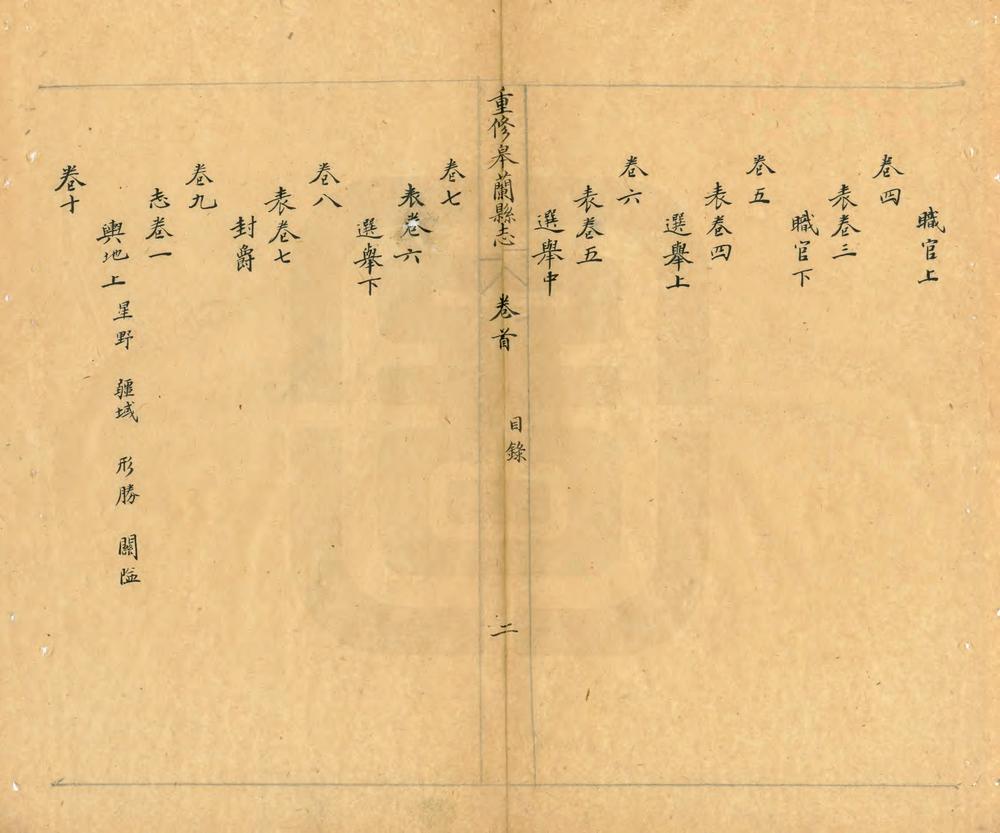 職官上
卷四
表卷三
職官下
卷五
表卷四
選舉上
卷六
表卷五
選舉中
重修皋蘭縣志 卷首 目錄 二
卷七
表卷六
選舉下
卷八
表卷七
封爵
卷九
志卷一
輿地上 星野 疆域 形勝 關隘
卷十